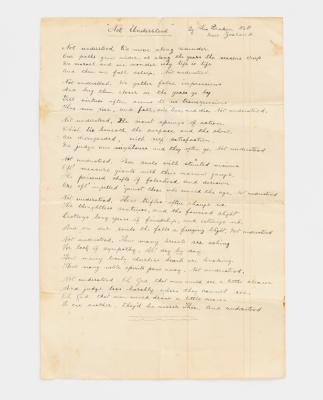 "Not Understood" By Thos Bracken
New Zealand
Not understood, We move along asunder
Our paths grow wider as along the years the seasons creep
We marvel and we wonder why life is life
And then we fall asleep, Not understood
Not understood, We gather false impressions
And hug them closer as the years go by
Till virtues often seem to us transgressions
Thus men rise and fall, and live and die, Not understood,
Not understood, The secret springs of action
What lie beneath the surface and the show,
Are disregarded, with self satisfaction
We judge our neighbours and they often go, Not understood
Not understood, Poor souls with stunted minds
Oft' measure giants with their narrow gauge,
The poisoned shafts of falsehood, and derision
Are oft' impelled 'gainst those who mould the age, Not understood
Not understood, How trifles often change us
The thoughtless sentence, and the fancied slight
Destroys long years of friendship, and estrange us
And on our souls there falls a freezing blight, Not understood
Not understood, How many breasts are aching
For lack of sympathy, Ah! day by day
How many lonely cheerless hearts are breaking,
How many noble spirits pass away, Not understood,
Not understood, Oh God, that men would see a little clearer
And judge less harshly where they cannot see,
Oh God, that men would draw a little nearer
To one another, They'd be nearer Thee, And understood